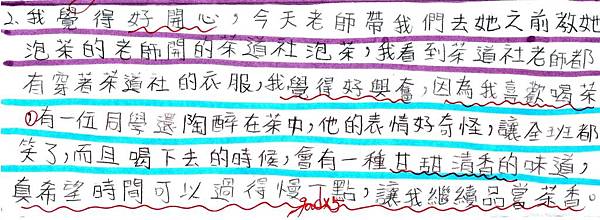 2.我覺得好開心，今天老師帶我們去她之前教她
泡茶的老師開的茶道社泡茶，我看到茶道社老師都
有穿著茶道社的衣服，我覺得好興奮，因為我喜歡喝茶
①有一位同學還陶醉在茶中，他的表情好奇怪，讓全班都
笑了，而且喝下去的時候，會有一種甘甜清香的味道，
真希望時間可以過得慢一點，讓我繼續品嘗茶香。
good×5